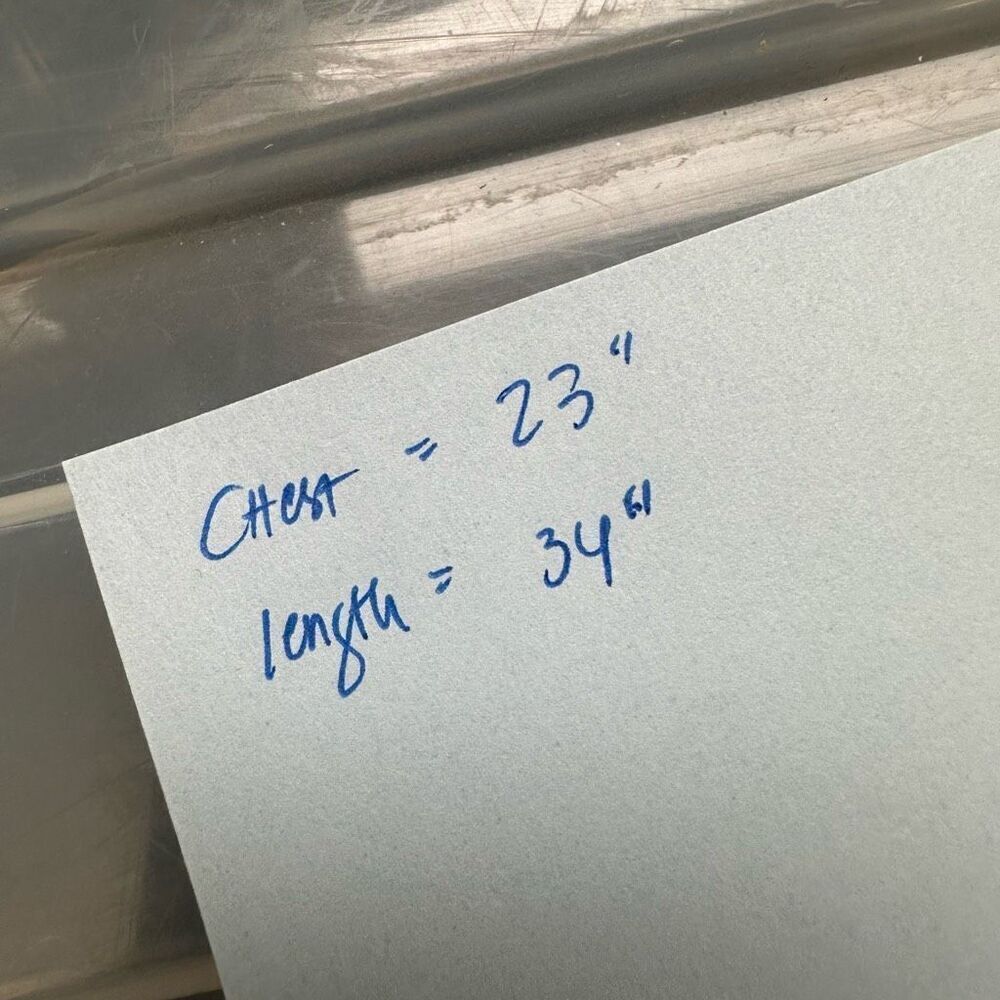 Chest = 23"
length = 34"